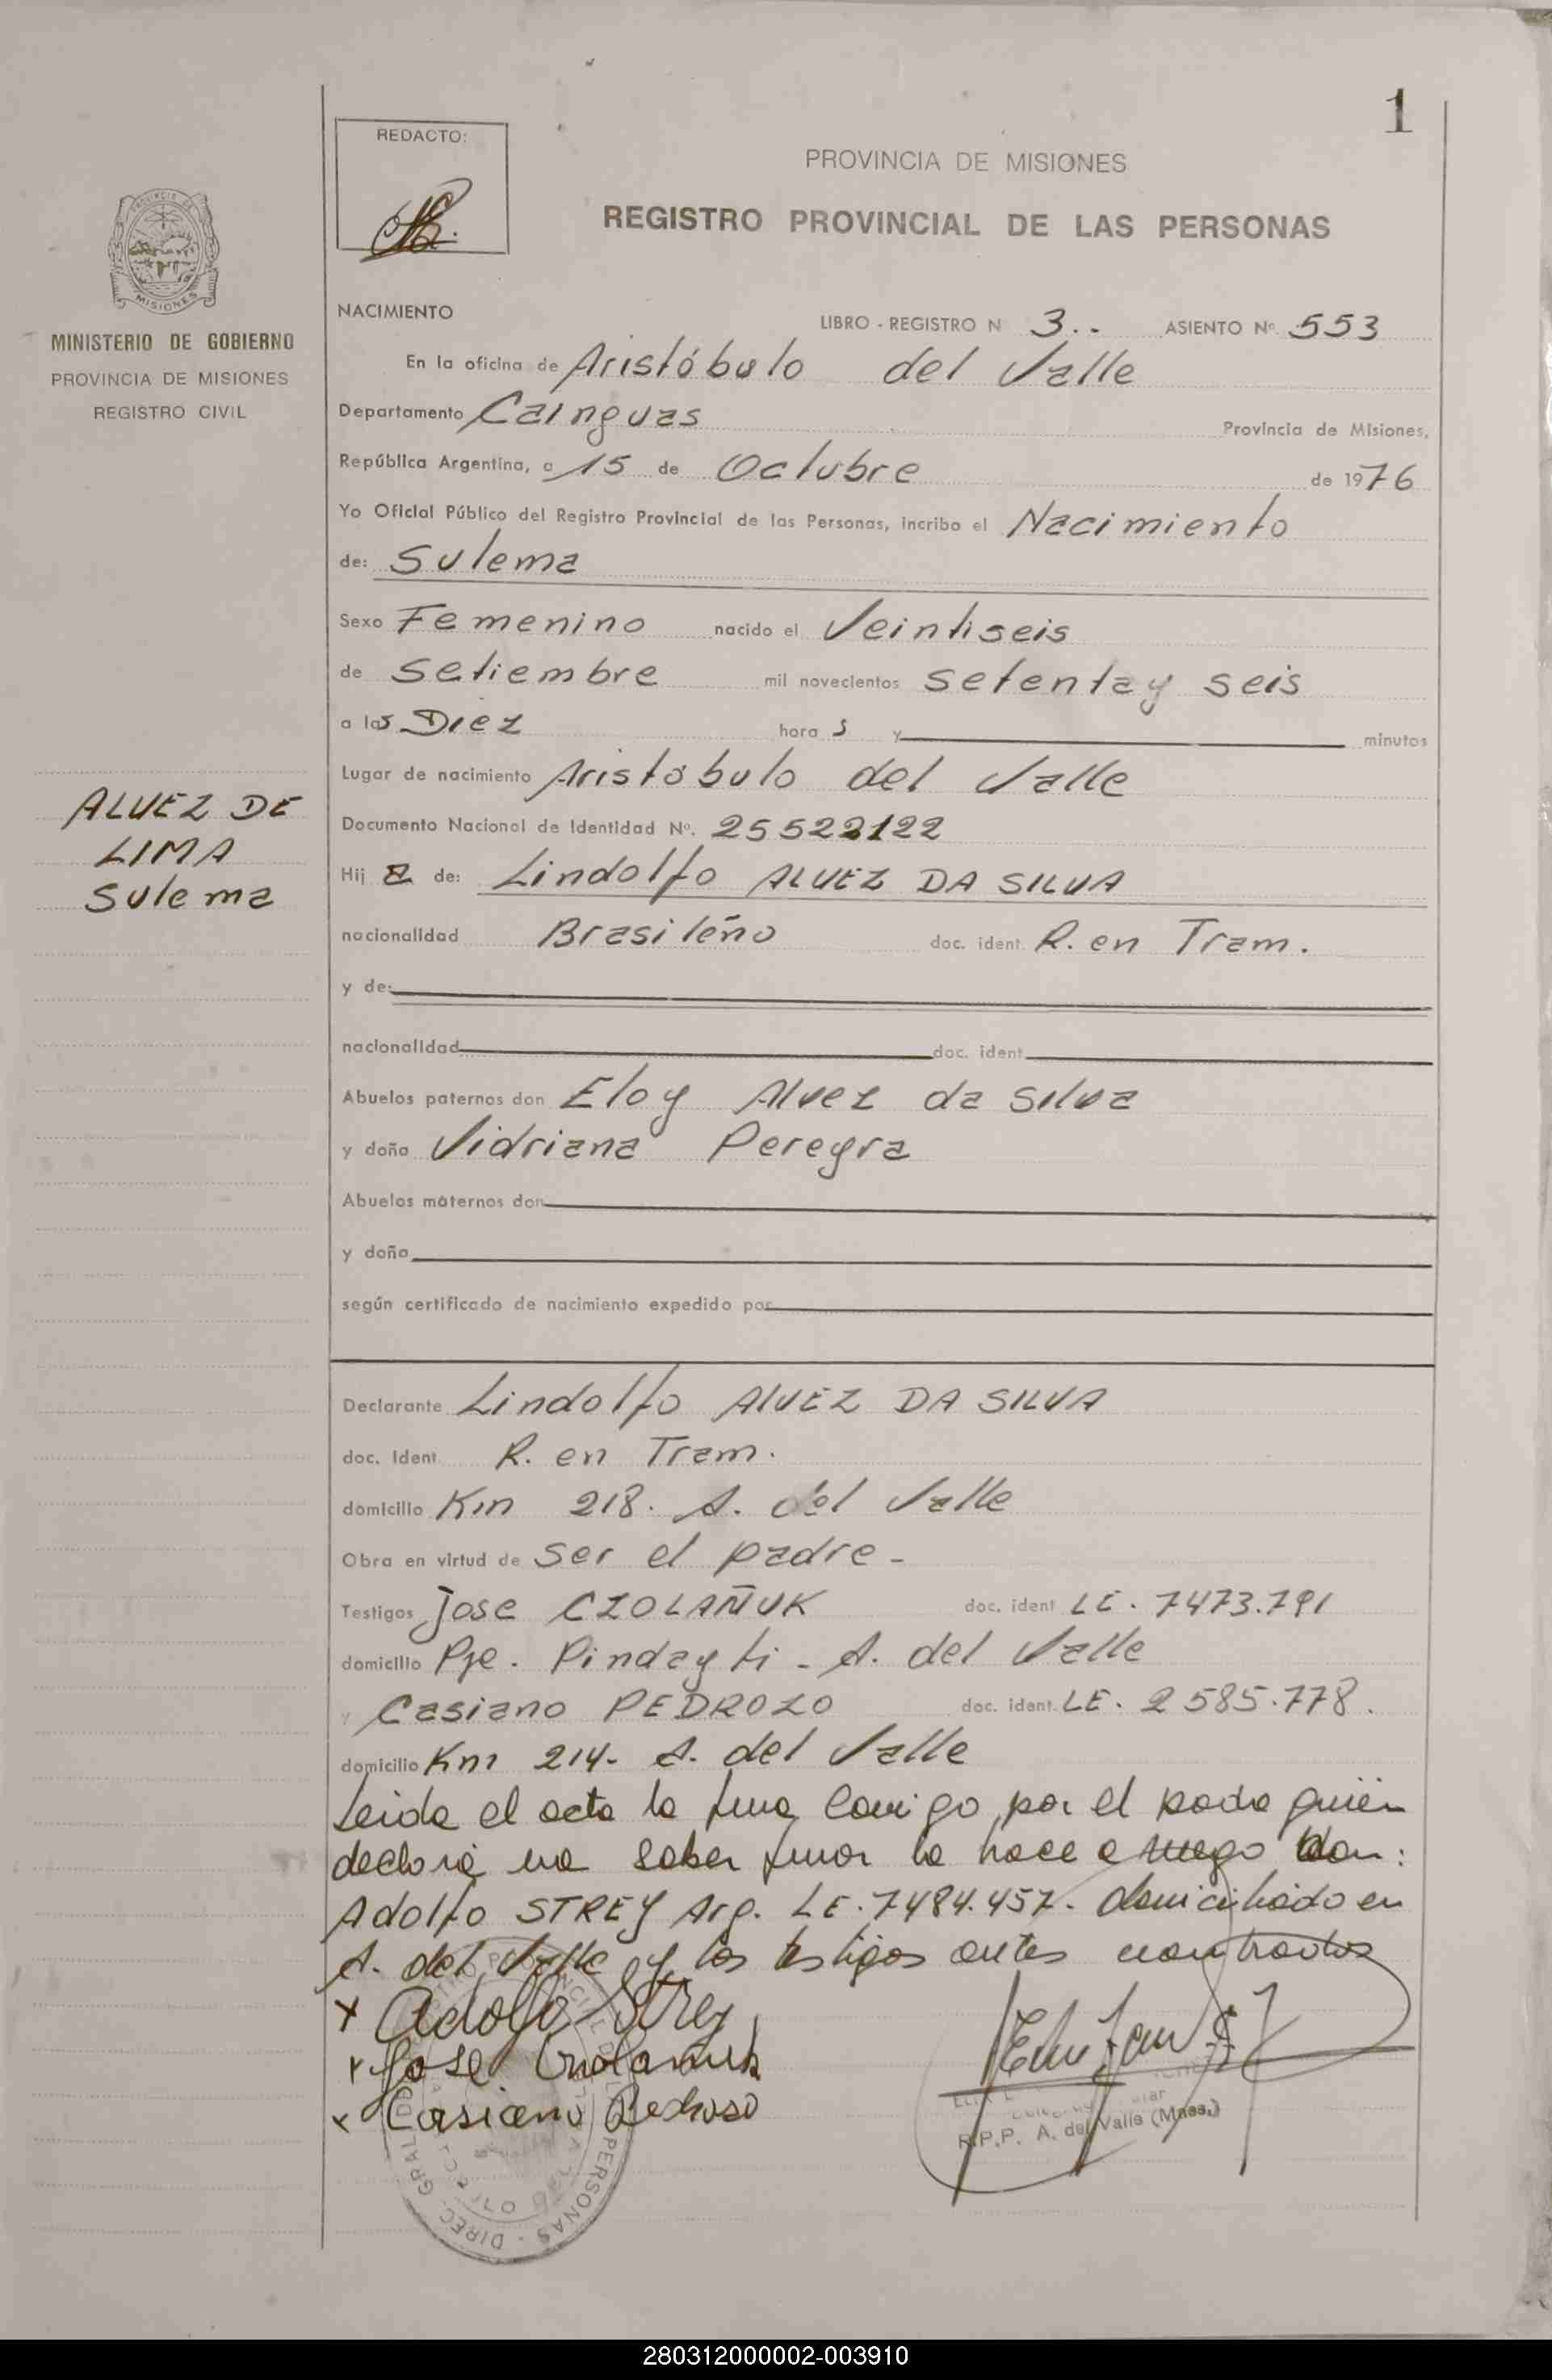 1
REDACTO:
PROVINCIA DE MISIONES
REGISTRO PROVINCIAL DE LAS PERSONAS
PROVINCIA DE MISIONES
MINISTERIO DE GOBIERNO
PROVINCIA DE MISIONES
REGISTRO CIVIL
ALVEZ DE
LIMA
Sulema
NACIMIENTO LIBRO - REGISTRO N 3.. ASIENTO Nº. 553
En la oficina de Aristóbulo del Valle
Departamento Cainguas Provincia de Misiones,
República Argentina, a 15 de Octubre de 1976
Yo Oficial Público del Registro Provincial de las Personas, incribo el Nacimiento
de: Sulema
Sexo Femenino nacido el Veintiseis
de Setiembre mil novecientos setenta y seis
a las Diez hora s y minutos
Lugar de nacimiento Aristobulo del Valle
Documento Nacional de Identidad Nº. 25522122
Hij a de: Lindolfo ALVEZ DA SILVA
nacionalidad Brasileño doc. ident. R. en Tram.
y de:
nacionalidad doc. ident.
Abuelos paternos don Eloy Alvez da Silva
y doña Vidriana Pereyra
Abuelos maternos don
y doña
según certificado de nacimiento expedido por
Declarante Lindolfo ALVEZ DA SILVA
doc. ident R. en Tram.
domicilio Km 218. A. del Valle
Obra en virtud de ser el padre -
Testigos Jose CZOLAÑUK doc. ident LE. 7473.791
domicilio Pje. Pindayti - A. del Valle
y Casiano PEDROZO doc. ident. LE. 2585.778.
domicilio Km 214- A. del Valle
Leida el acta la firma conmigo por el padre quien
declara no saber firmar lo hace a ruego don:
Adolfo STREY Arg. LE. 7484.457. domiciliado en
A. del Valle y los testigos antes nombrados
x Adolfo Strey
x Jose Czolanuk
x Casiano Pedroso
R.P.P. A. del Valle (Mnes.)
280312000002-003910